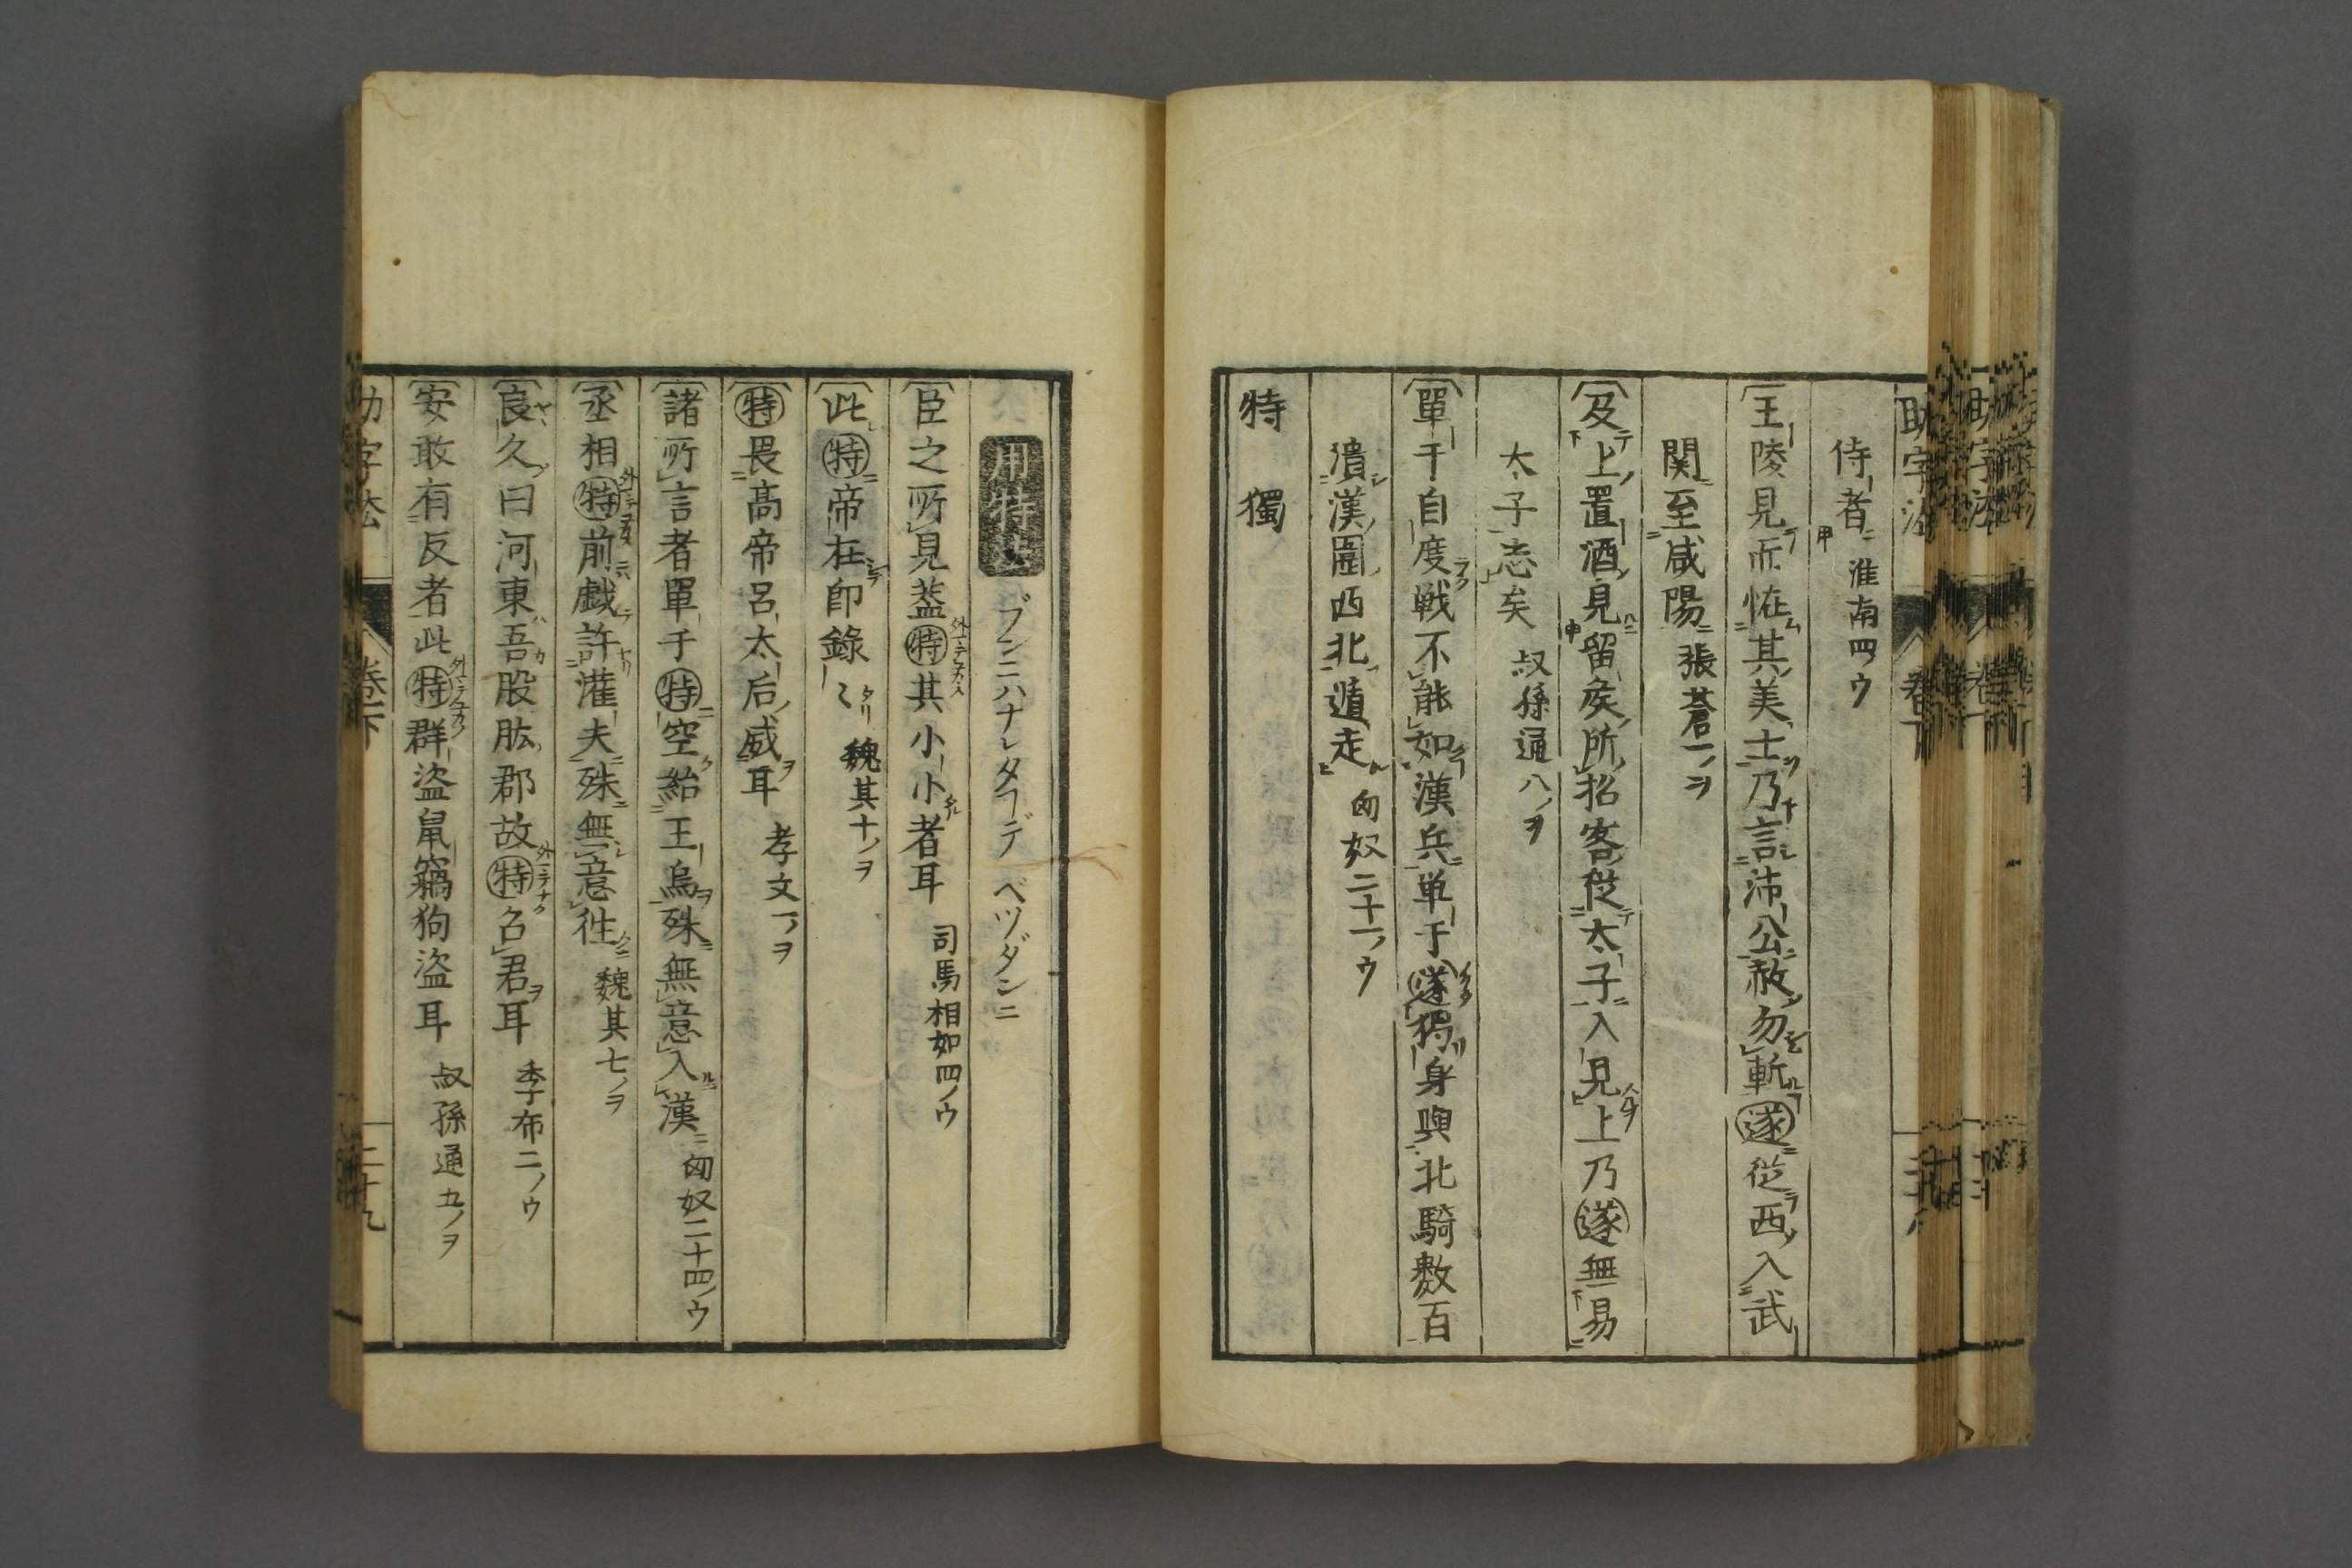 侍者 淮南四ウ
王陵見而怪其美士乃言沛公赦勿斬遂從西入武
関至咸陽 張蒼一ヲ
及上置酒見留矦所招客從太子入見上乃遂無易
太子志矣 叔孫通八ヲ
單于自度戦不能如漢兵単于遂獨身與北騎數百
潰漢圍西北遁走 匈奴二十一ウ
特 獨
用特法 ブンニハナレタコーデ ベツダンニ
臣之所見蓋特其小小者耳 司馬相如四ノウ
此特帝在即錄〻 魏其十ノヲ
特畏高帝呂太后威耳 孝文一ヲ
諸所言者單于特空紿王烏殊無意入漢 匈奴二十四ノウ
丞相特前戯許灌夫殊無意往 魏其七ノヲ
良久曰河東吾股肱郡故特召君耳 季布二ノウ
安敢有反者此特群盗鼠竊狗盗耳 叔孫通五ノヲ
助字法 卷下 二十九